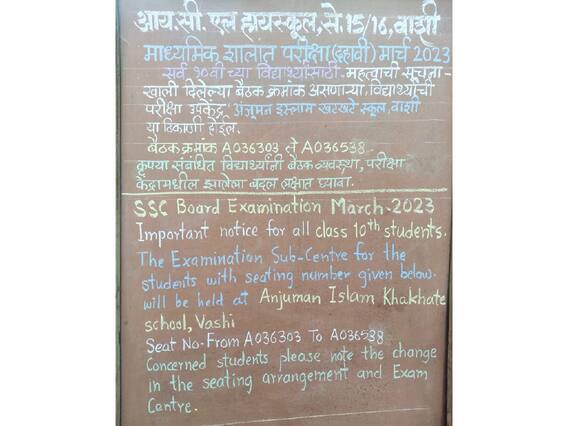 आय.सी. एल हायस्कूल, से. 15/16, वाशी
माध्यमिक शालांत परीक्षा (दहावी) मार्च 2023
सर्व १०वी च्या विद्यार्थ्यांसाठी महत्वाची सूचना -
खाली दिलेल्या बैठक क्रमांक असणाऱ्या, विद्यार्थ्यांची
परीक्षा उपकेंद्र अंजूमन इस्लाम खरखटे स्कूल, वाशी
या ठिकाणी होईल.
बैठक क्रमांक A036303 ते A036538
कृप्या संबंधित विद्यार्थ्यांनी बैठक व्यवस्था, परीक्षा
केंद्रामधील झालेला बदल लक्षात घ्यावा.
SSC Board Examination March-2023
Important notice for all class 10th students.
The Examination Sub-Centre for the
students with seating number given below
will be held at Anjuman Islam Khakhate
school, Vashi
Seat No-From A036303 To A036538
Concerned students please note the change
in the seating arrangement and Exam
Centre.